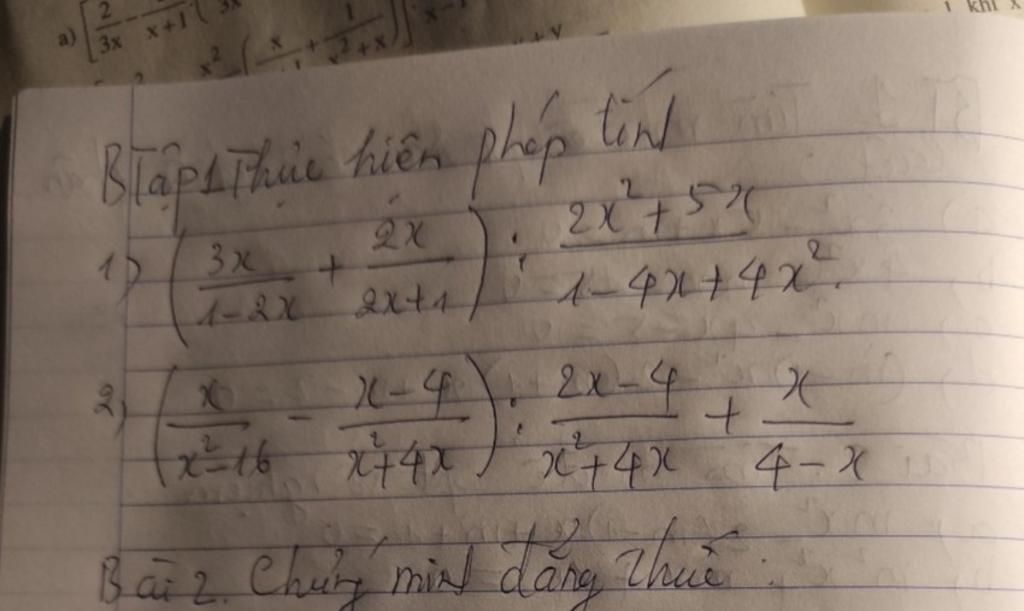 a) [2/3x - 2/x+1 (
x² - ( x + 1/x²+x )]
khi x
BTập1 Thực hiện phép tính
1) (3x/1-2x + 2x/2x+1) : 2x²+5x/1-4x+4x².
2) (x/x²-16 - x-4/x²+4x) : 2x-4/x²+4x + x/4-x
Bài 2. Chứng minh đẳng thức :